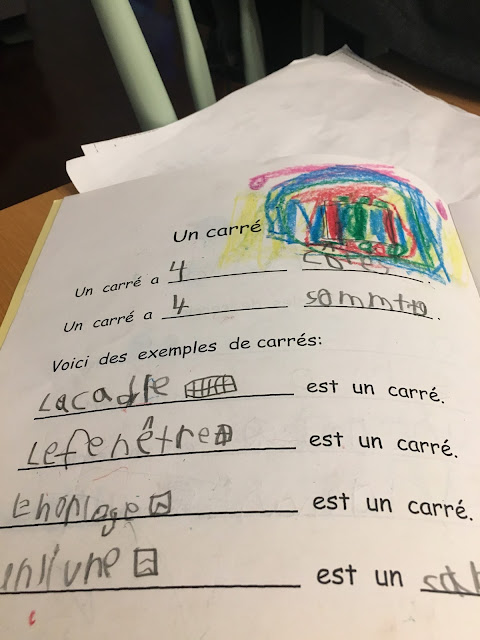 Un carré
Un carré a 4 côtés.
Un carré a 4 sommtto.
Voici des exemples de carrés:
Lacadle est un carré.
Lefenêtre est un carré.
est un carré.
est un